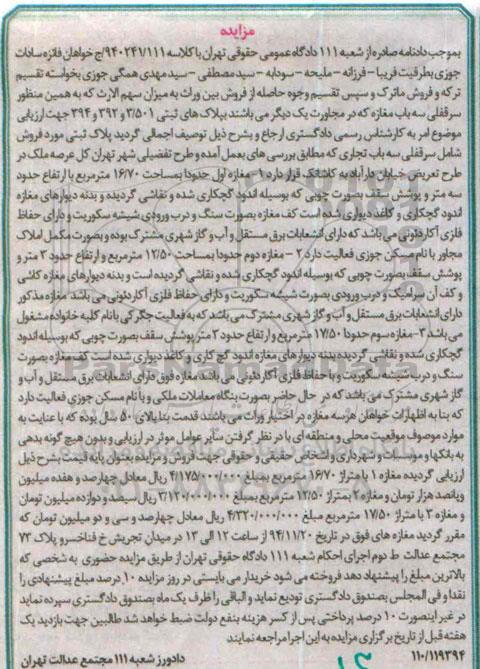 مزایده
بموجب دادنامه صادره از شعبه ۱۱۱ دادگاه عمومی حقوقی تهران با کلاسه ۹۴۰۲۴۱/۱۱۱/ج خواهان فائزه سادات
جوزی بطرفیت فریبا – فرزانه – ملیحه – سودابه – سیدمصطفی – سیدمهدی همگی جوزی بخواسته تقسیم
ترکه و فروش ماترک و سپس تقسیم وجوه حاصله از فروش بین وراث به میزان سهم الارث که به همین منظور
سرقفلی سه باب مغازه که در مجاورت یک دیگر می باشند بپلاک های ثبتی ۳/۵۰۱ و ۳۹۲ و ۳۹۴ جهت ارزیابی
موضوع امر به کارشناس رسمی دادگستری ارجاع و بشرح ذیل توصیف اجمالی گردید پلاک ثبتی مورد فروش
شامل سرقفلی سه باب تجاری که مطابق بررسی های بعمل آمده و طرح تفضیلی شهر تهران کل عرصه ملک در
طرح تعریض خیابان دارآباد به کاشانک قرار دارد ۱- مغازه اول حدودا بمساحت ۱۶/۷۰ مترمربع با ارتفاع حدود
سه متر و پوشش سقف بصورت چوبی که بوسیله اندود گچکاری شده و نقاشی گردیده و بدنه دیوارهای مغازه
اندود گچکاری و کاغذ دیواری شده است کف مغازه بصورت سنگ و درب ورودی شیشه سکوریت و دارای حفاظ
فلزی آکاردئونی می باشد که دارای انشعابات برق مستقل و آب و گاز شهری مشترک بوده و بصورت مکمل املاک
مجاور با نام مسکن جوزی فعالیت دارد ۲ – مغازه دوم حدودا بمساحت ۱۲/۵۰ مترمربع و ارتفاع حدود ۳ متر و
پوشش سقف بصورت چوبی که بوسیله اندود گچکاری شده و نقاشی گردیده است و بدنه دیوارهای مغازه کاشی
و کف آن سرامیک و درب ورودی بصورت شیشه سکوریت و دارای حفاظ فلزی آکاردئونی می باشد مغازه مذکور
دارای انشعابات برق مستقل و آب و گاز شهری مشترک می باشد که به فعالیت جگرکی با نام کلبه خانواده مشغول
می باشد ۳-مغازه سوم حدودا ۱۷/۵۰ مترمربع و ارتفاع حدود ۳ متر پوشش سقف بصورت چوبی که بوسیله اندود
گچکاری شده و نقاشی گردیده بدنه دیوارهای مغازه اندود گچ کاری و کاغذ دیواری شده است کف مغازه بصورت
سنگ و درب شیشه سکوریت و با حفاظ فلزی آکاردئونی می باشد مغازه فوق دارای انشعابات برق مستقل و آب و
گاز شهری مشترک می باشد که در حال حاضر بصورت بنگاه معاملات ملکی و با نام مسکن جوزی فعالیت دارد
که بنا به اظهارات خواهان هرسه مغازه در اختیار وراث می باشند قدمت بنا بالای ۵۰ سال بوده که با عنایت به
موارد موصوف موقعیت محلی و منطقه ای با در نظر گرفتن سایر عوامل موثر در ارزیابی و بدون هیچ گونه بدهی
به بانکها و موسسات و شهرداری و اشخاص حقیقی و حقوقی جهت فروش و مزایده بعنوان پایه قیمت بشرح ذیل
ارزیابی گردیده مغازه ۱ با متراژ ۱۶/۷۰ مترمربع بمبلغ ۴/۱۷۵/۰۰۰/۰۰۰ ریال معادل چهارصد و هفده میلیون
وپانصد هزار تومان و مغازه ۲ بمتراژ ۱۲/۵۰ مترمربع بمبلغ ۳/۱۲۰/۰۰۰/۰۰۰ ریال سیصد و دوازده میلیون تومان
و مغازه ۳ با متراژ ۱۷/۵۰ مترمربع مبلغ ۴/۳۲۰/۰۰۰/۰۰۰ ریال معادل چهارصد و سی و دو میلیون تومان که
مقرر گردید مغازه های فوق در تاریخ ۹۴/۱۱/۲۰ از ساعت ۱۲ الی ۱۳ در میدان تجریش خ فناخسرو پلاک ۷۳
مجتمع عدالت ط دوم اجرای احکام شعبه ۱۱۱ دادگاه حقوقی تهران از طریق مزایده حضوری به شخصی که
بالاترین مبلغ را پیشنهاد دهد فروخته می شود خریدار می بایستی در روز مزایده ۱۰ درصد مبلغ پیشنهادی را
نقدا و فی المجلس بصندوق دادگستری تودیع نماید و الباقی را ظرف یک ماه بصندوق دادگستری سپرده نماید
در غیر اینصورت ۱۰ درصد پرداختی پس از کسر هزینه بنفع دولت ضبط خواهد شد طالبین جهت بازدید یک
هفته قبل از تاریخ برگزاری مزایده به این اجرا مراجعه نمایند
۱۱۰/۱۱۹۳۹۴
دادورز شعبه ۱۱۱ مجتمع عدالت تهران